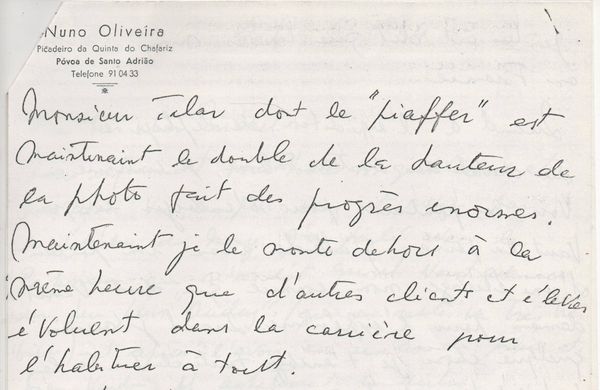 Nuno Oliveira
Picadeiro da Quinta do Chafariz
Póvoa de Santo Adrião
Telefone 91 04 33
Monsieur Talar dont le "piaffer" est
maintenaint le double de la hauteur de
la photo fait des progrès enormes.
Maintenaint je le monte dehors à la
même heure que d'autres clients et élèves
évoluent dans la carrière pour
l'habituer à tout.